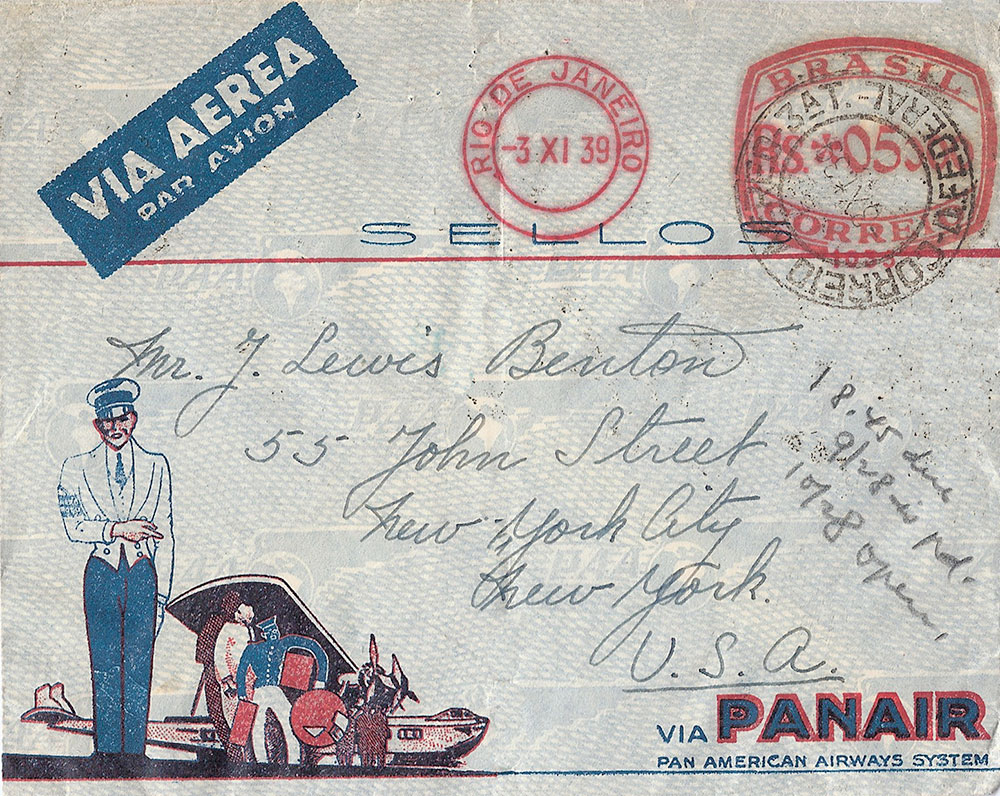 VIA AEREA
PAR AVION
RIO DE JANEIRO
-3 XI 39
BRASIL
RS.
CORREIO
SELLOS
CORREIO
FEDERAL
Mr. J. Lewis Benton
55 John Street
New York City
New York.
U.S.A.
18.45 due
9/28
10/28 Open
VIA PANAIR
PAN AMERICAN AIRWAYS SYSTEM